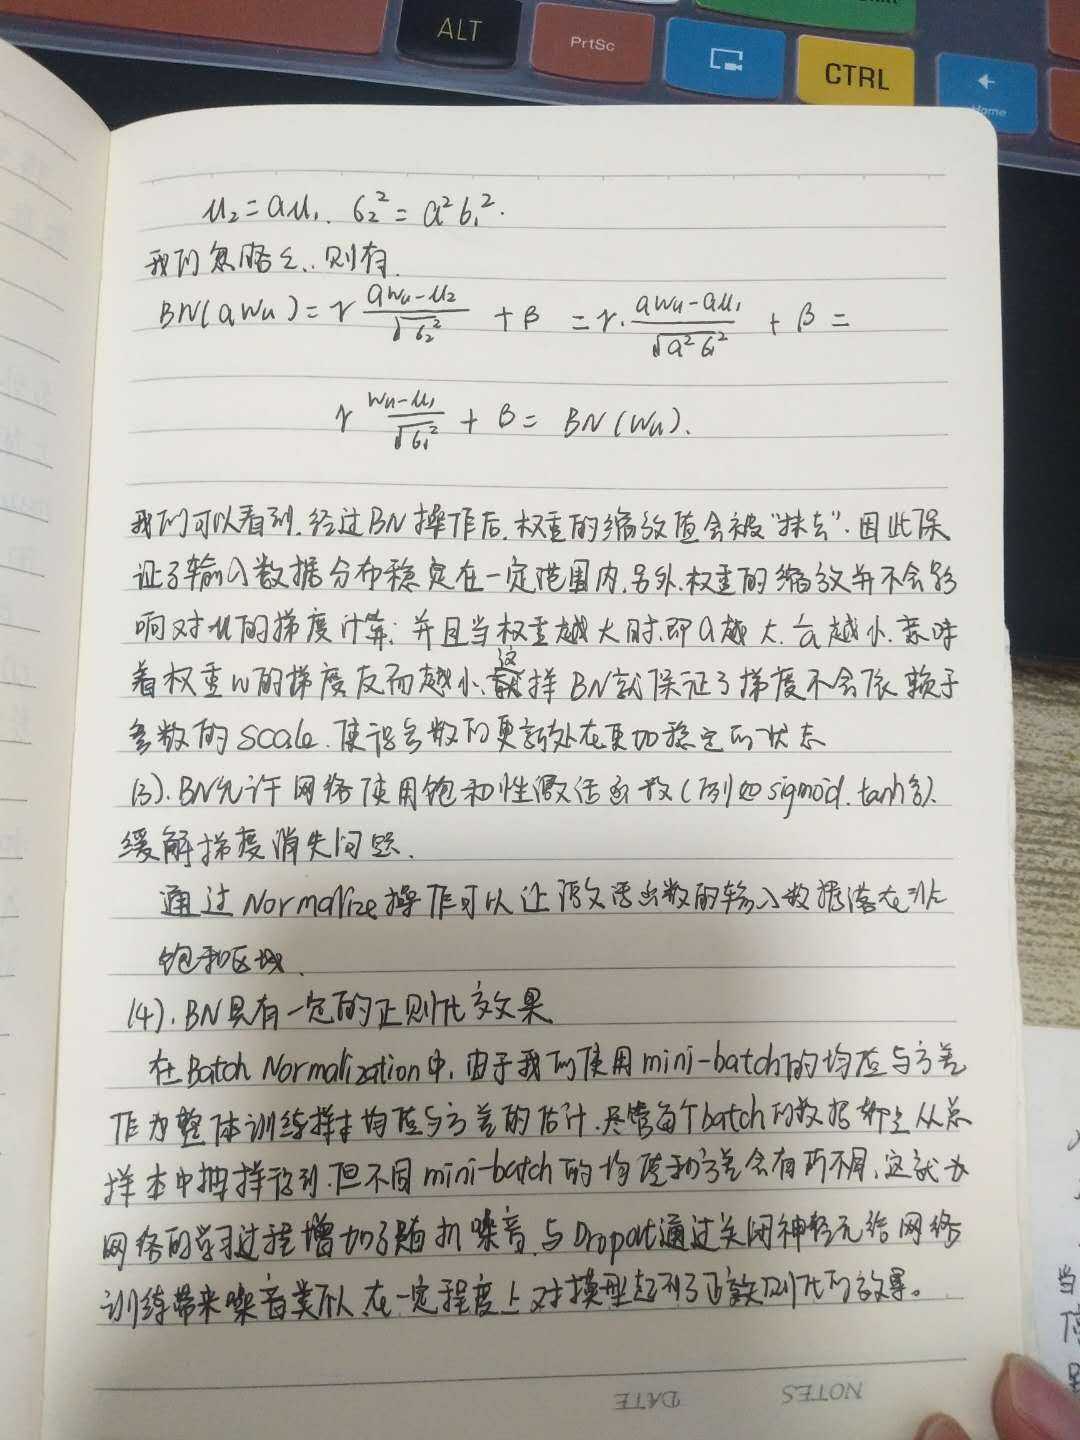 ALT
PrtSc
CTRL
Home
μ₂=aμ₁. б₂²=a²б₁².
我们忽略ε, 则有.
BN(aWu)=γ (aWu-μ₂)/√(б₂²) + β =γ· (aWu-aμ₁)/√(a²б₁²) + β =
γ (Wu-μ₁)/√(б₁²) + β = BN(Wu).
我们可以看到, 经过BN操作后, 权重的缩放值会被"抹去". 因此保
证了输入数据分布稳定在一定范围内. 另外, 权重的缩放并不会影
响对u的梯度计算; 并且当权重越大时, 即a越大, 1/a越小. 意味
着权重w的梯度反而越小, 这样BN就保证了梯度不会依赖于
参数的scale, 使得参数的更新处在更加稳定的状态
(3). BN允许网络使用饱和性激活函数(例如sigmod. tanh等).
缓解梯度消失问题.
通过Normalize操作可以让激活函数的输入数据落在非
饱和区域.
(4). BN具有一定的正则化效果
在Batch Normalization中, 由于我们使用mini-batch的均值与方差
作为整体训练样本均值与方差的估计. 尽管每个batch的数据都是从总
样本中抽样得到, 但不同mini-batch的均值和方差会有所不同, 这就为
网络的学习过程增加了随机噪音, 与Dropout通过关闭神经元给网络
训练带来噪音类似, 在一定程度上对模型起到了正则化的效果。
NOTES
DATE
当